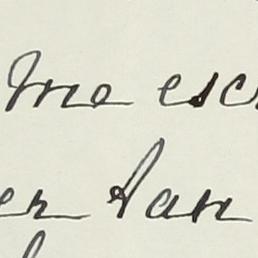 me esc
er San